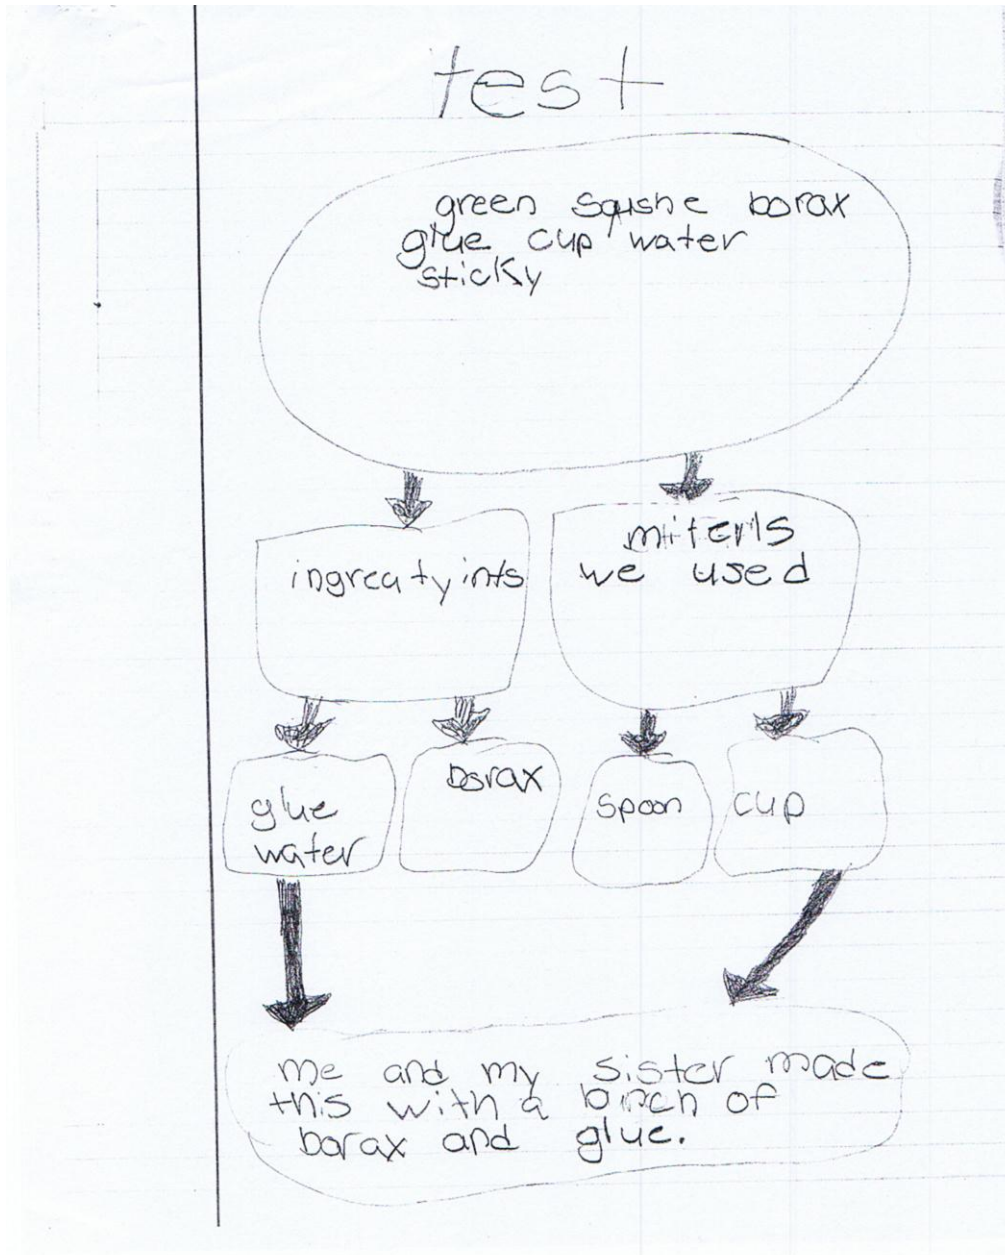 test
green squshe borax
glue cup water
sticky
ingreatyints
miterls
we used
glue
water
borax
spoon
cup
me and my sister made
this with a binch of
borax and glue.